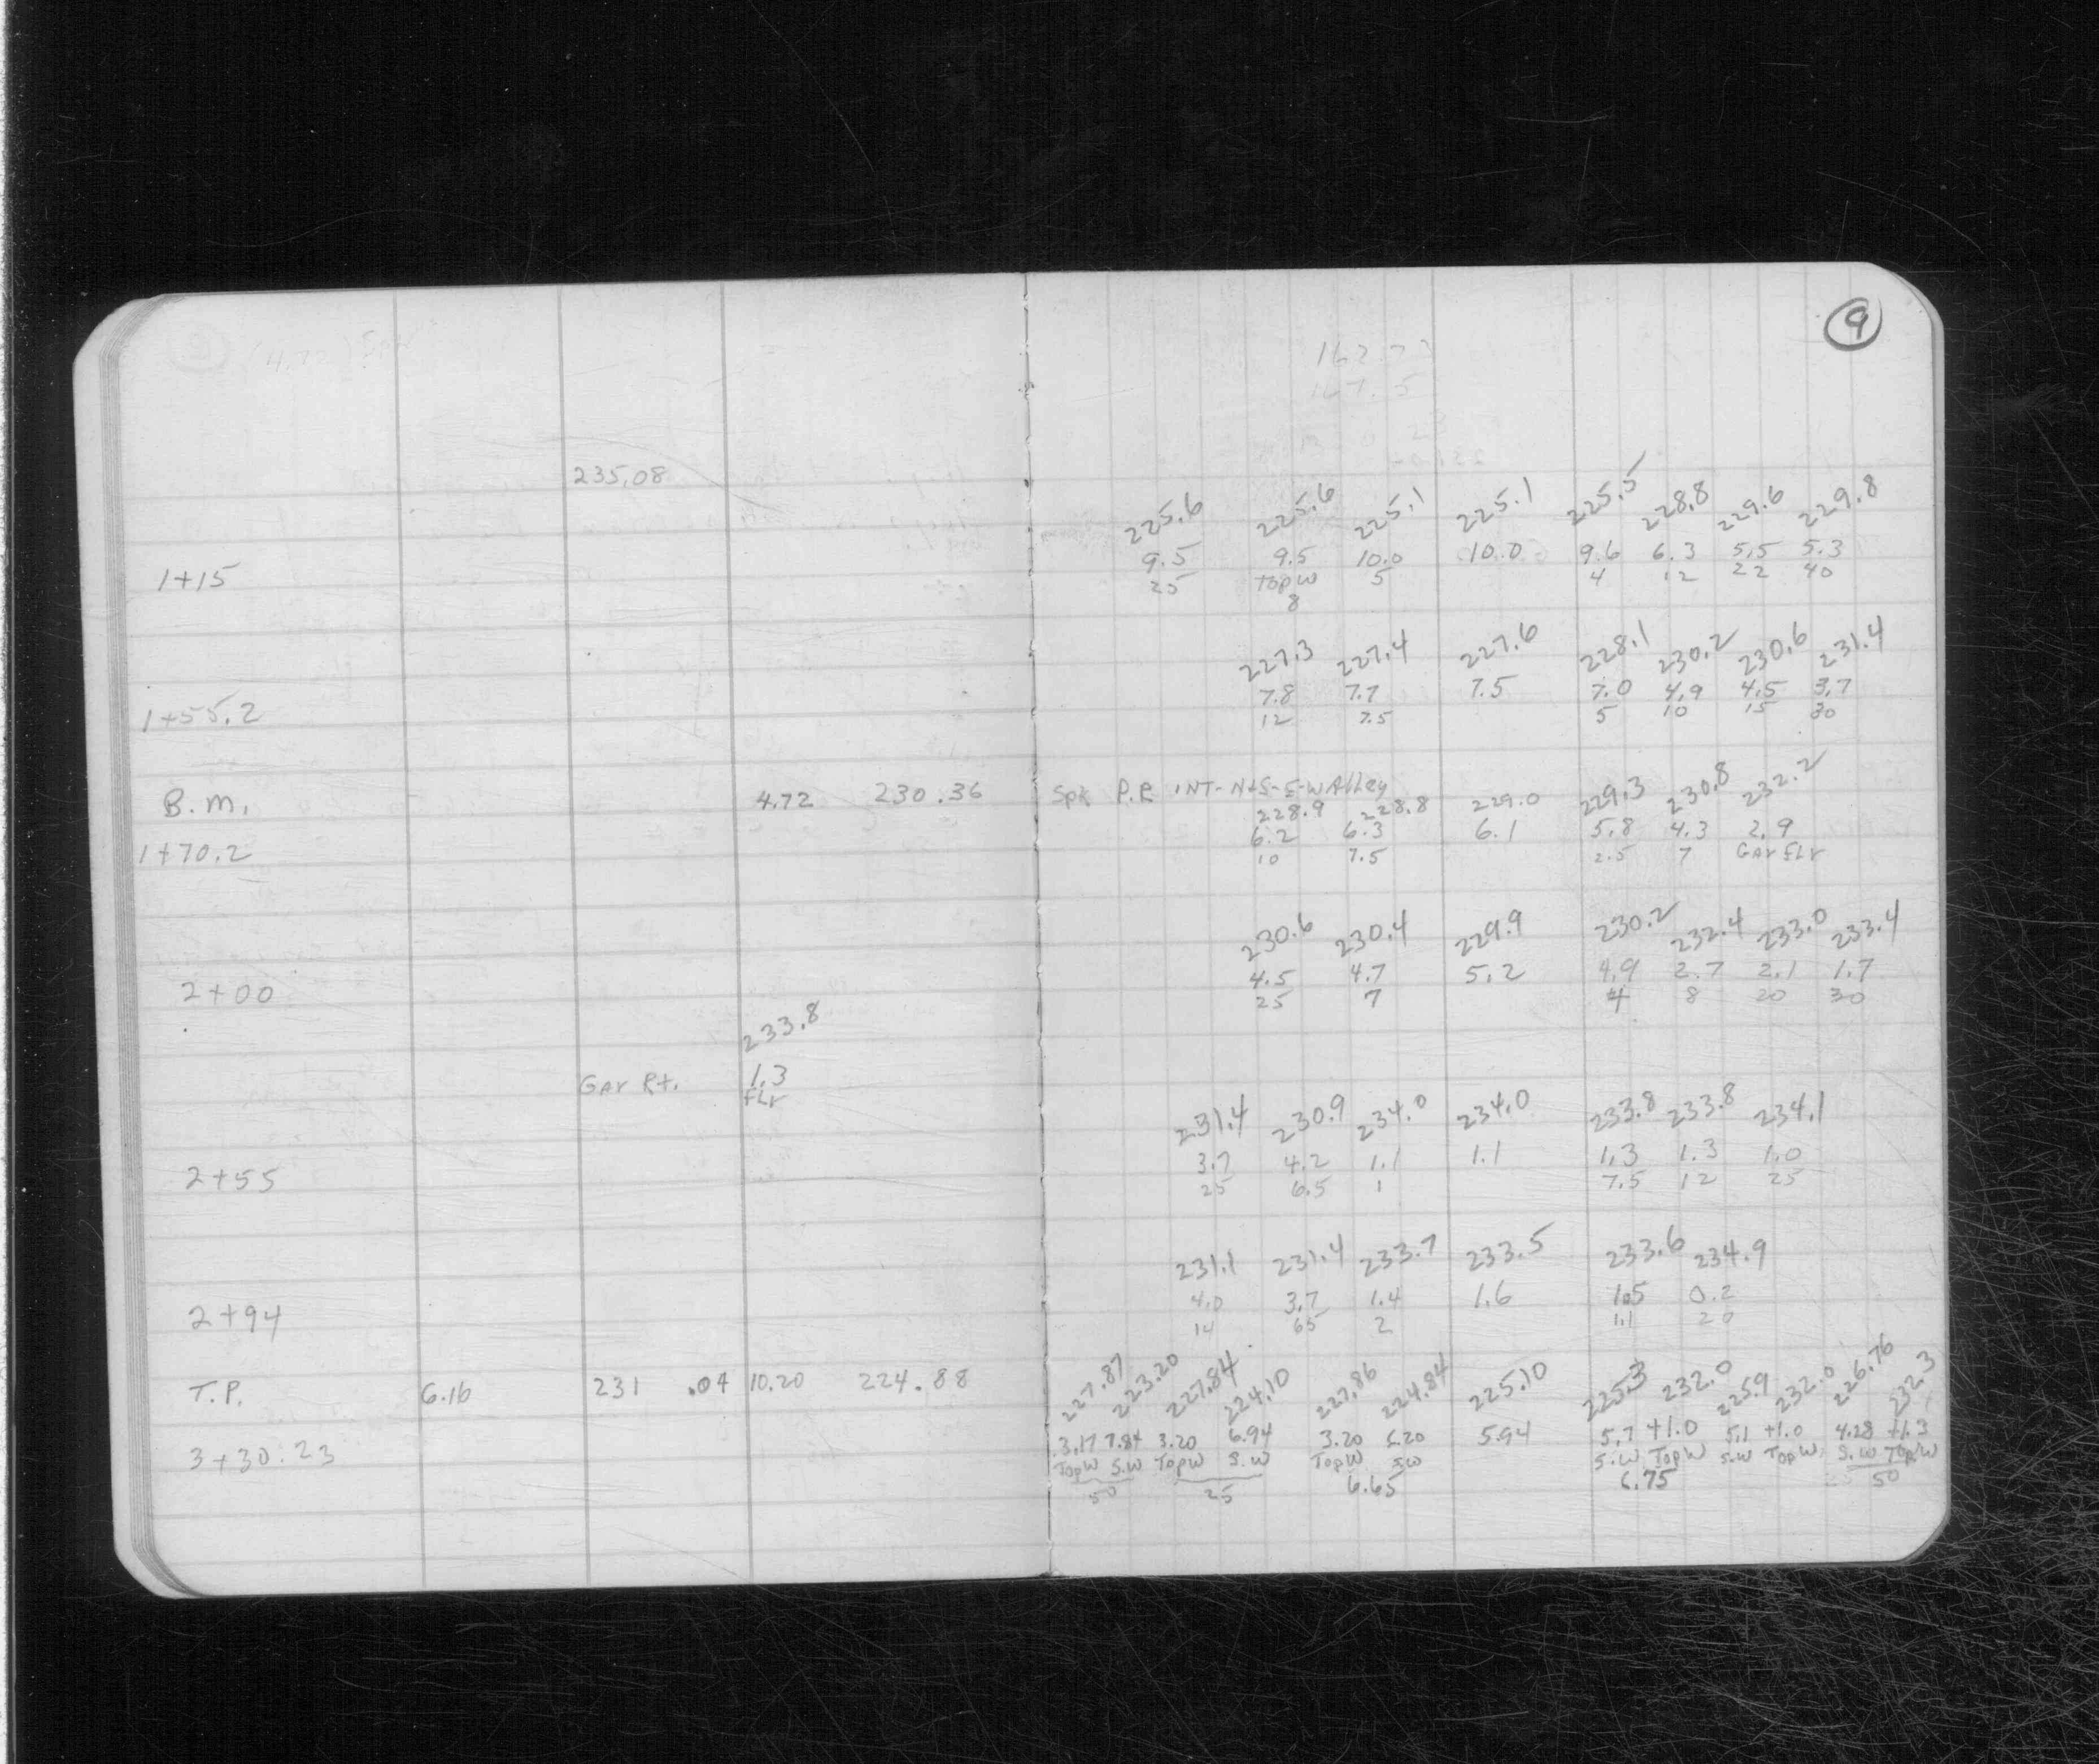 9
162.73
167.5
235.08
225.6 225.6 225.1 225.1 225.5 228.8 229.6 229.8
9.5 9.5 10.0 10.0 9.6 6.3 5.5 5.3
1+15 25 TopW 5 4 12 22 40
8
227.3 227.4 227.6 228.1 230.2 230.6 231.4
7.8 7.7 7.5 7.0 4.9 4.5 3.7
1+55.2 12 7.5 5 10 15 30
B.M. 4.72 230.36 Spk P.P. INT-N+S-E-W Alley
228.9 228.8 229.0 229.3 230.8 232.2
6.2 6.3 6.1 5.8 4.3 2.9
1+70.2 10 7.5 2.5 7 Gar Flr
230.6 230.4 229.9 230.2 232.4 233.0 233.4
4.5 4.7 5.2 4.9 2.7 2.1 1.7
2+00 25 7 4 8 20 30
233.8
Gar Rt. 1.3
Flr
231.4 230.9 234.0 234.0 233.8 233.8 234.1
3.7 4.2 1.1 1.1 1.3 1.3 1.0
2+55 25 6.5 1 7.5 12 25
231.1 231.4 233.7 233.5 233.6 234.9
4.0 3.7 1.4 1.6 1.5 0.2
2+94 14 65 2 11 20
T.P. 6.16 231 .04 10.20 224.88 227.87 223.20 227.84 224.10 227.86 224.84 225.10 225.3 232.0 225.9 232.0 226.76 232.3
3.17 7.84 3.20 6.94 3.20 6.20 5.94 5.7 +1.0 5.1 +1.0 4.28 +1.3
3+30.23 TopW S.W TopW S.W TopW SW S.W TopW S.W TopW S.W TopW
50 25 6.65 6.75 50